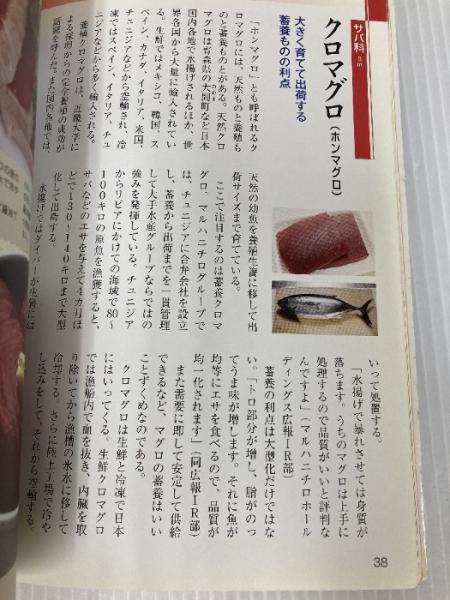 サバ科 3m
クロマグロ（ホンマグロ）
大きく育てて出荷する
蓄養ものの利点
「ホンマグロ」とも呼ばれるク
ロマグロには、天然ものと養殖も
のと蓄養ものとがある。天然クロ
マグロは青森県の大間町など日本
国内各地で水揚げされるほか、世
界各国から大量に輸入されてい
る。生鮮ではメキシコ、韓国、ス
ペイン、カナダ、イタリア、米国、
チュニジアなどから空輸され、冷
凍ではスペイン、イタリア、チュ
ニジアなどから多く輸入される。
養殖クロマグロは、近畿大学に
よる採卵からの完全養殖の成功が
話題を呼んだ。また国内各地では、
天然の幼魚を養殖生簀に移して出
荷サイズまで育てている。
ここで注目するのは蓄養クロマ
グロ。マルハニチログループで
は、チュニジアに合弁会社を設立
し、蓄養から出荷までを一貫管理
して大手水産グループならではの
強みを発揮している。チュニジア
からリビアにかけての海域で80〜
100キロの原魚を漁獲すると、
サバなどのエサを与えて4カ月ほ
どで130〜140キロまで大型
化して出荷する。
水揚げではダイバーが生簀には
いって処置する。
「水揚げで暴れさせては身質が
落ちます。うちのマグロは上手に
処理するので品質がいいと評判な
んですよ」（マルハニチロホール
ディングス広報IR部）
蓄養の利点は大型化だけではな
い。「トロ部分が増し、脂がのっ
てうま味が増します。それに魚が
均等にエサを食べるので、品質が
均一化されます」（同広報IR部）
また需要に即して安定して供給
できるなど、マグロの蓄養はいい
ことずくめなのである。
クロマグロは生鮮と冷凍で日本
にはいってくる。生鮮クロマグロ
では漁船内で血を抜き、内臓を取
り除いてから漁槽の氷水に移して
冷却する。さらに陸上工場で冷や
し込みをして、それから空輸する。
38